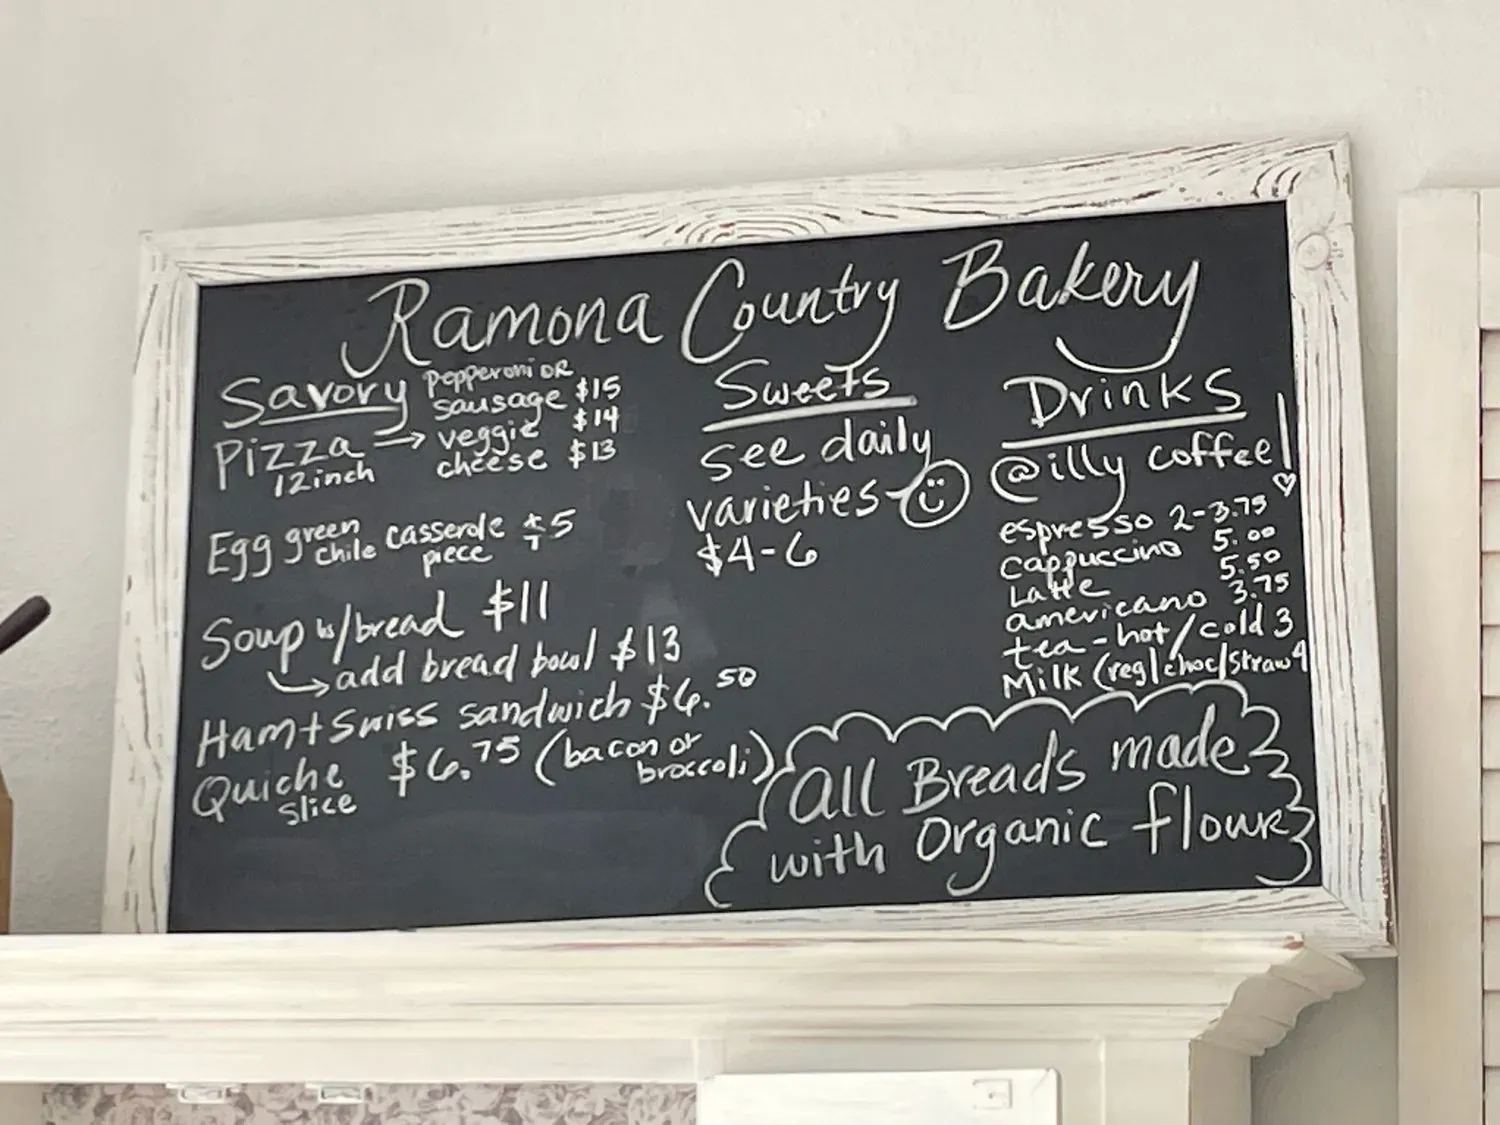 Ramona Country Bakery
Savory
Pizza → pepperoni OR
sausage $15
veggie $14
cheese $13
12inch
Egg green chile casserole piece $5
Soup w/bread $11
→ add bread bowl $13
Ham + Swiss sandwich $6.50
Quiche slice $6.75 (bacon or broccoli)
Sweets
see daily
varieties
$4-6
Drinks
@illy coffee!
espresso 2-3.75
cappuccino 5.00
Latte 5.50
americano 3.75
tea - hot/cold 3
Milk (reg/choc/straw 4
All Breads made
with Organic flour